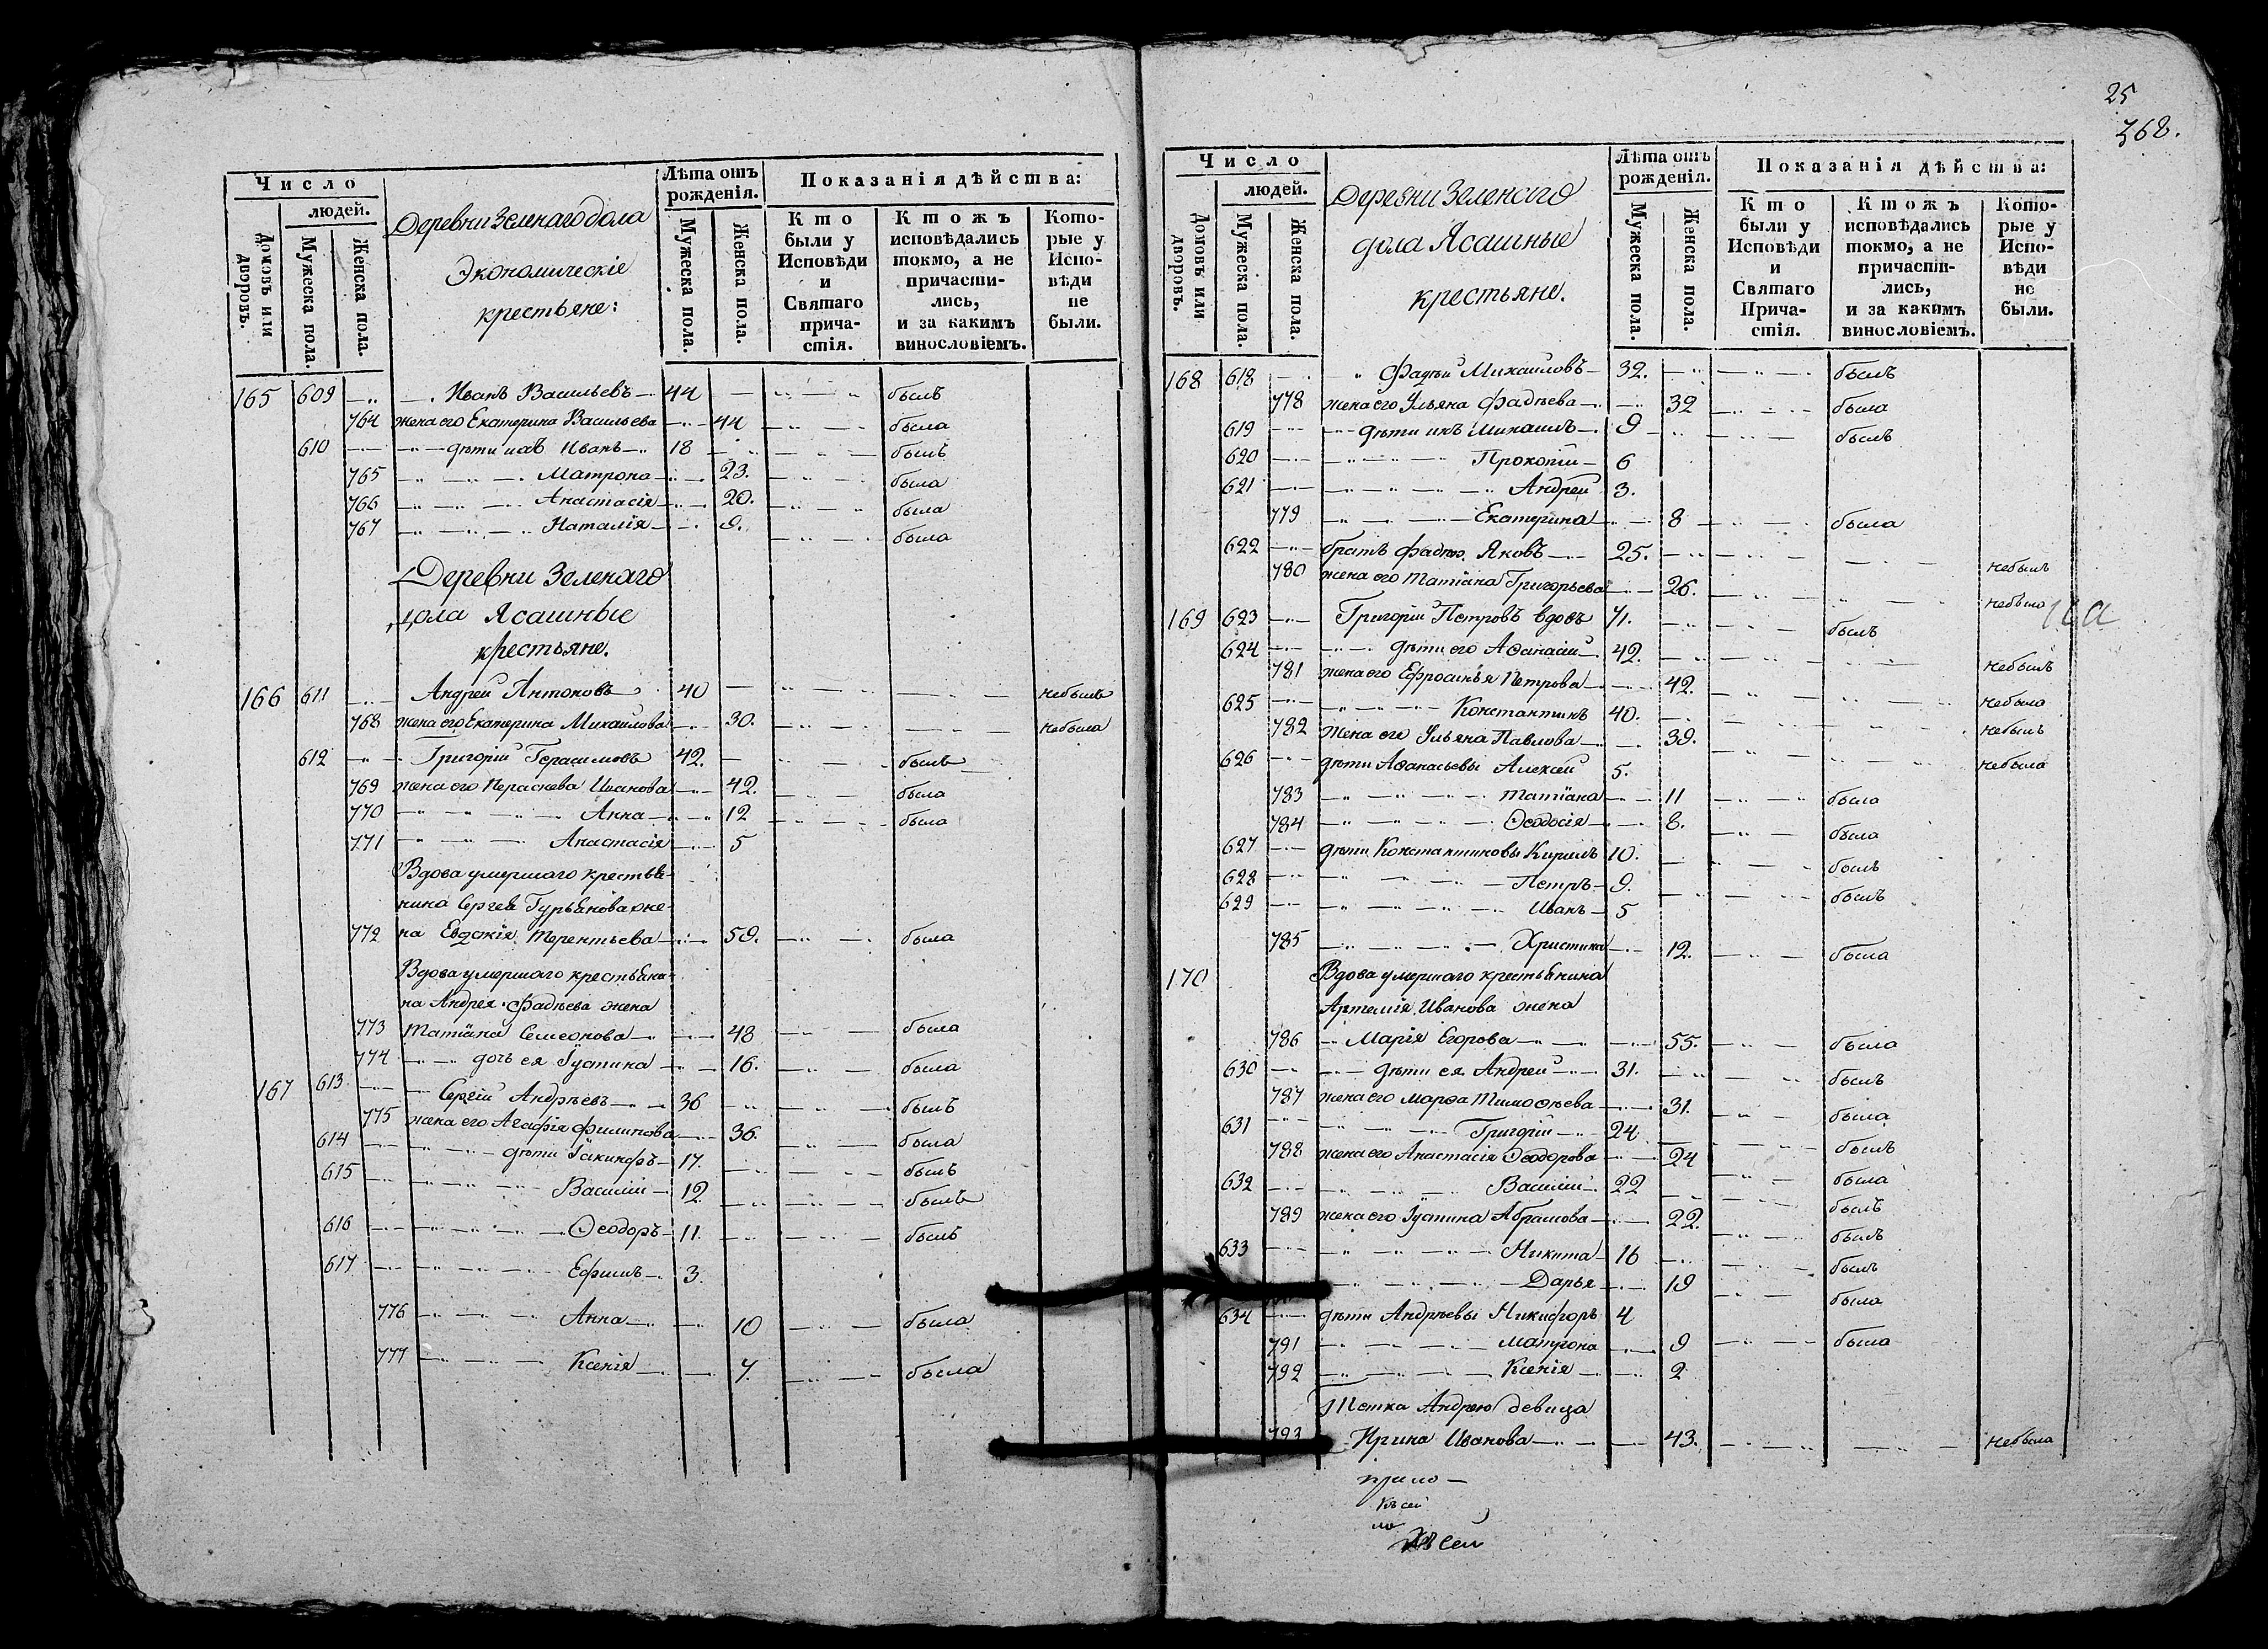 Число
людей.
Домовъ или дворовъ.
Мужеска пола.
Женска пола.
Деревни Зеленаго дола
Экономическіе
крестьяне:
Лѣта отъ рожденія.
Мужеска пола.
Женска пола.
Показанія дѣйства:
Кто были у Исповѣди и Святаго причастія.
Ктожъ исповѣдались токмо, а не причастились, и за какимъ винословіемъ.
Которые у Исповѣди не были.
165 609 — Иванъ Васильевъ — 44 былъ
764 жена его Екатерина Васильева — 44 была
610 — дѣти ихъ Иванъ — 18 былъ
765 — Матрона — 23. была
766 — Анастасія — 20. была
767 — Наталія — 9. была
Деревни Зеленаго
дола Ясашные
крестьяне.
166 611 Андрей Антоновъ 40 небылъ
768 жена его Екатерина Михайлова — 30. небыла
612 — Григорій Герасимовъ 42. былъ
769 жена его Параскева Иванова — 42. была
770 — Анна — 12 была
771 — Анастасія — 5
Вдова умершаго крестья-
нина Сергея Гурьянова же-
772 на Евдокія Терентьева — 59. была
Вдова умершаго крестьяни-
на Андрея Фадѣева жена
773 Татіана Семеонова — 48 была
774 — дочь ея Іустина — 16. была
167 613 — Сергій Андрѣевъ — 36 былъ
775 жена его Агафія Филипова — 36. была
614 — дѣти Іакинфъ — 17. былъ
615 — Василій — 12. былъ
616 — Ѳеодоръ — 11. былъ
617 — Ефимъ — 3.
776 — Анна — 10 была
777 — Ксенія — 7. была
25
368.
Число
людей.
Домовъ или дворовъ.
Мужеска пола.
Женска пола.
Деревни Зеленаго
дола Ясашные
крестьяне.
Лѣта отъ рожденія.
Мужеска пола.
Женска пола.
Показанія дѣйства:
Кто были у Исповѣди и Святаго Причастія.
Ктожъ исповѣдались токмо, а не причастились, и за какимъ винословіемъ.
Которые у Исповѣди не были.
168 618 — Фадѣй Михаиловъ — 32. былъ
778 жена его Ульяна Фадѣева — 32 была
619 — дѣти ихъ Михаилъ — 9 былъ
620 — Прокопій — 6
621 — Андрей 3.
779 — Екатерина — 8 была
622 — братъ Фадѣю Яковъ — 25. небылъ
780 жена его Татіана Григорьева — 26. небыла
169 623 — Григорій Петровъ вдовъ 71. былъ
624 — дѣти его Аѳанасій — 42. небылъ
781 жена его Ефросинья Петрова — 42. небыла
625 — Константинъ 40. небылъ
782 жена его Ульяна Павлова — 39. небыла
626 — дѣти Аѳанасьевы Алексей 5.
783 — Татіана — 11 была
784 — Ѳеодосія — 8. была
627 — дѣти Константиновы Кирилъ 10. былъ
628 — Петръ — 9. былъ
629 — Иванъ — 5
785 — Христина — 12. была
170 Вдова умершаго крестьянина
Артемія Иванова жена
786 — Марія Егорова — 55. была
630 — дѣти ея Андрей — 31. былъ
787 жена его Марѳа Тимоѳѣева — 31. была
631 — Григорій — 24 былъ
788 жена его Анастасія Ѳеодорова — 24 была
632 — Василій — 22 былъ
789 жена его Іустина Абрамова — 22. былъ
633 — Никита — 16 былъ
— Дарья — 19 была
634 — дѣти Андрѣевы Никифоръ 4
791 — Матрона — 9 была
792 — Ксенія — 2
Тетка Андрею девица
793 Ирина Иванова — 43. небыла
къ сей
къ сей